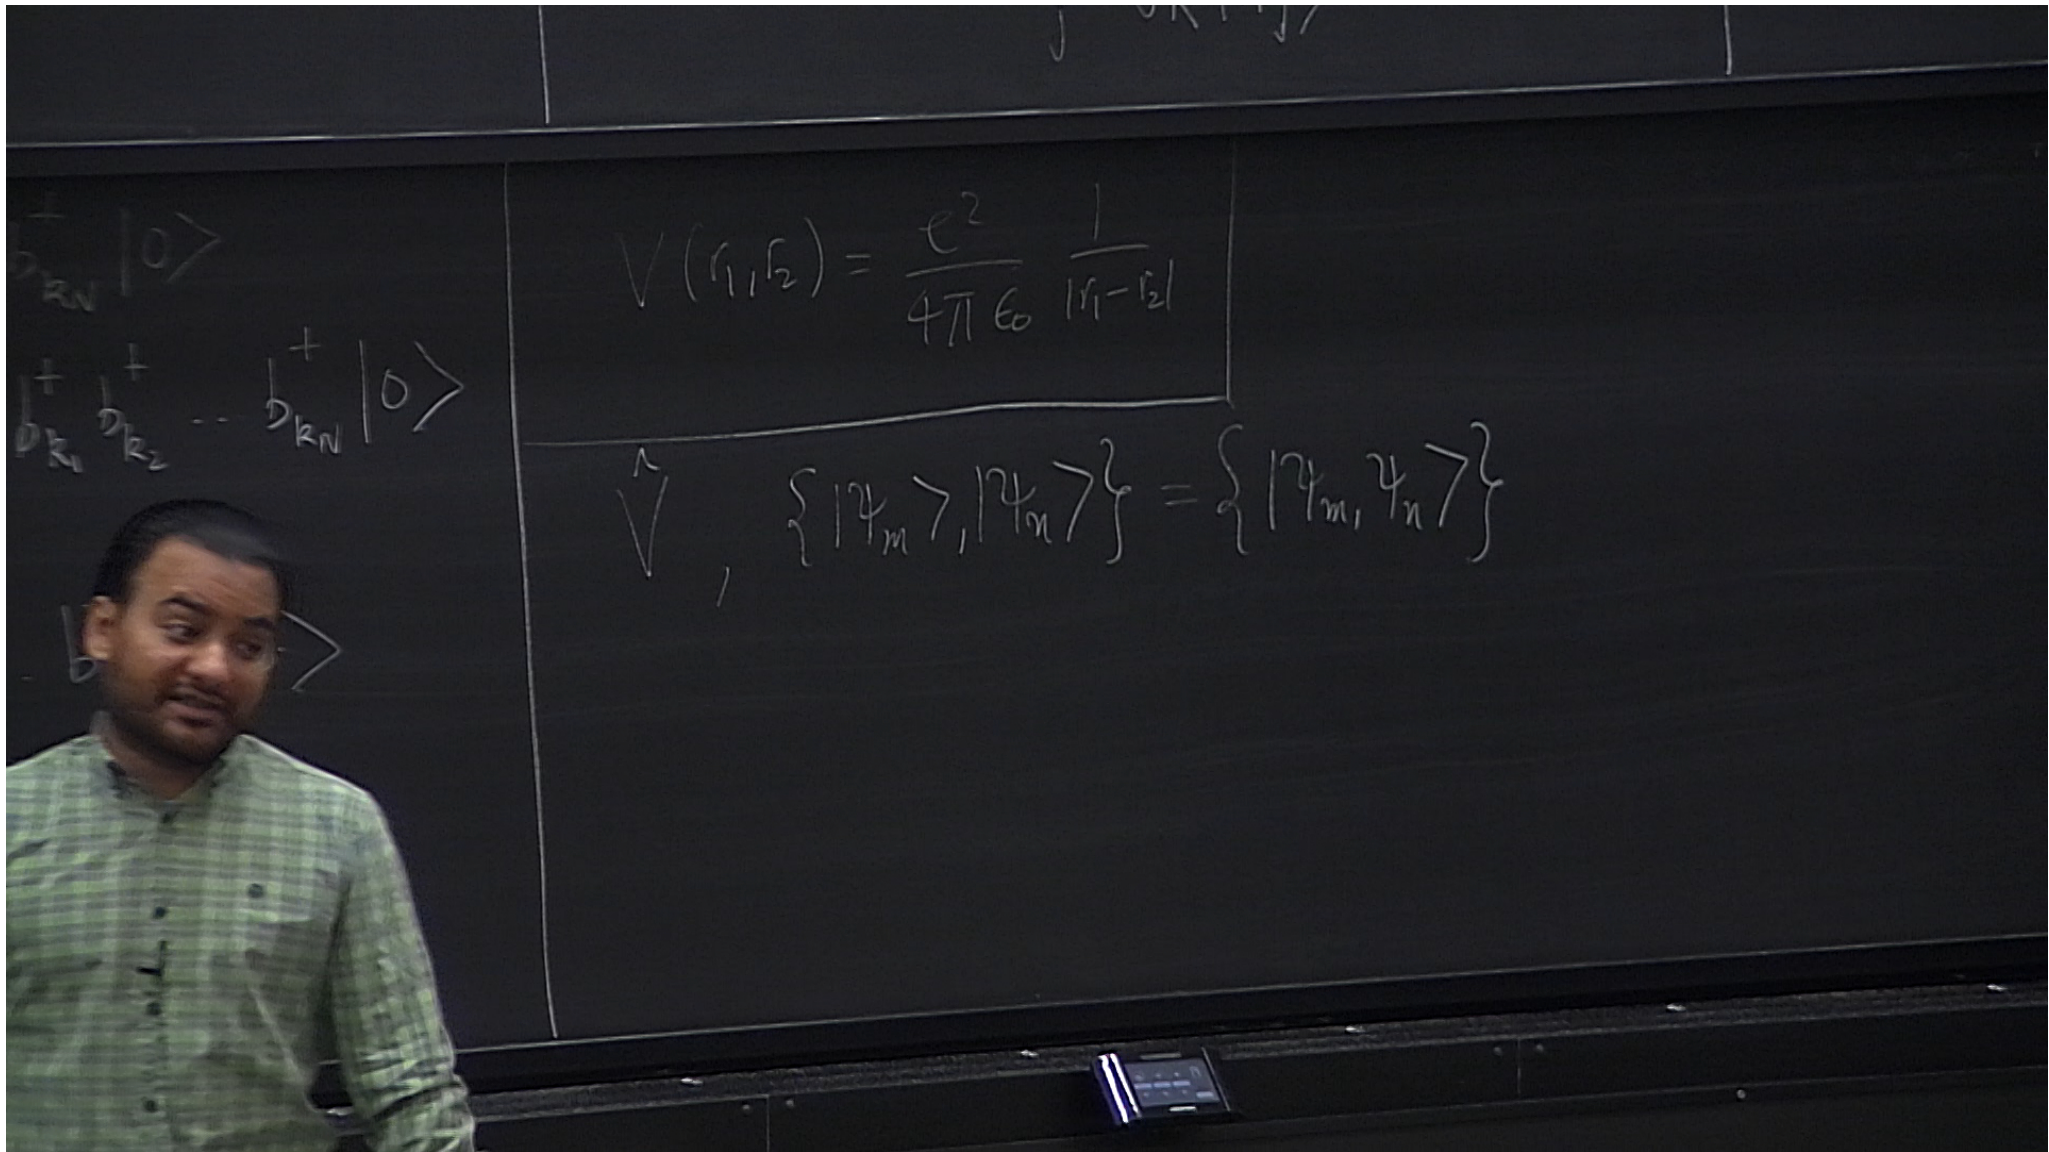 b⁺_{k_N} |0⟩
b⁺_{k_1} b⁺_{k_2} ... b⁺_{k_N} |0⟩
. b ⟩
V(r₁,r₂) = e²/(4πϵ₀) 1/|r₁-r₂|
V̂ , {|ψ_m⟩,|ψ_n⟩} = {|ψ_m,ψ_n⟩}